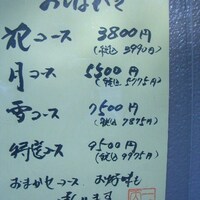 おしながき
花コース 3800円
(税込 3990円)
月コース 5500円
(税込 5775円)
雪コース 7500円
(税込 7875円)
特選コース 9500円
(税込 9975円)
おまかせコース お好み
ます